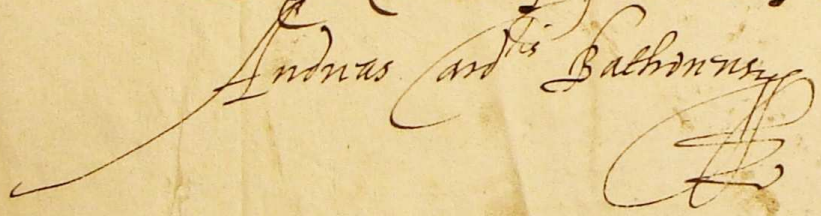 Andreas Card^lis Bathoreus